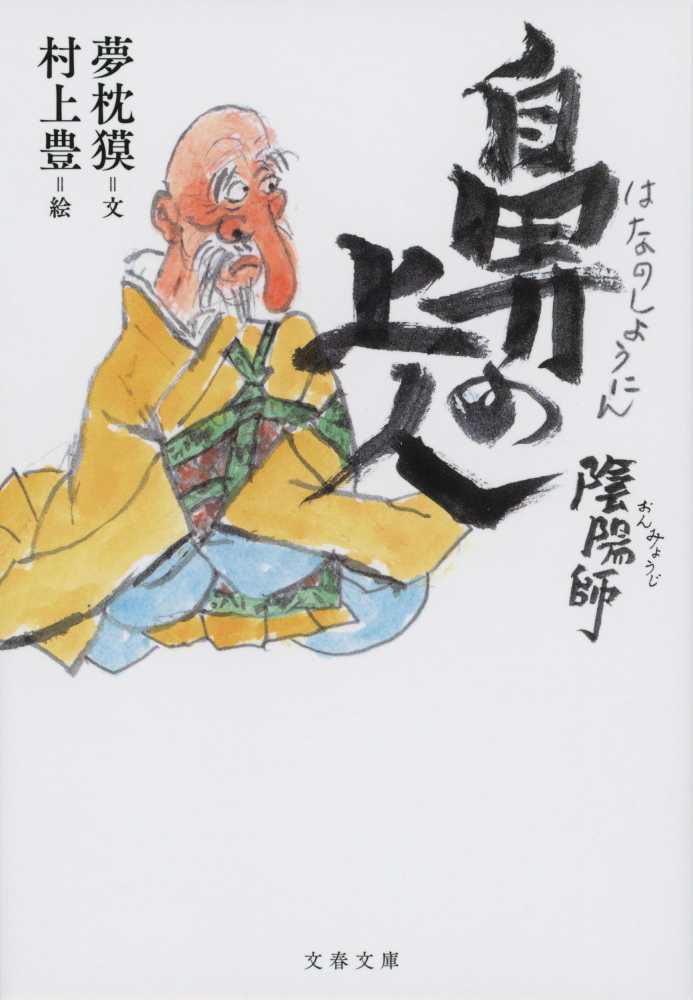 鼻の
上人
はなのしょうにん
陰陽師
おんみょうじ
夢枕獏=文
村上豊=絵
文春文庫